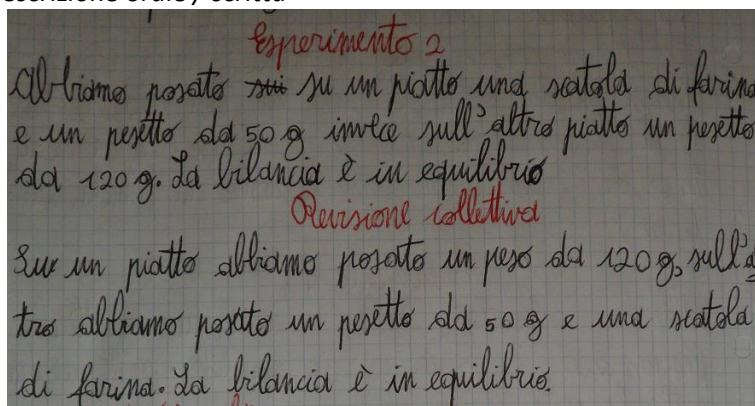 Esperimento 2
Abbiamo posato su un piatto una scatola di farina
e un pesetto da 50 g invece sull'altro piatto un pesetto
da 120 g. La bilancia è in equilibrio
Revisione collettiva
Su un piatto abbiamo posato un peso da 120 g, sull'a
tro abbiamo posato un pesetto da 50 g e una scatola
di farina. La bilancia è in equilibrio.